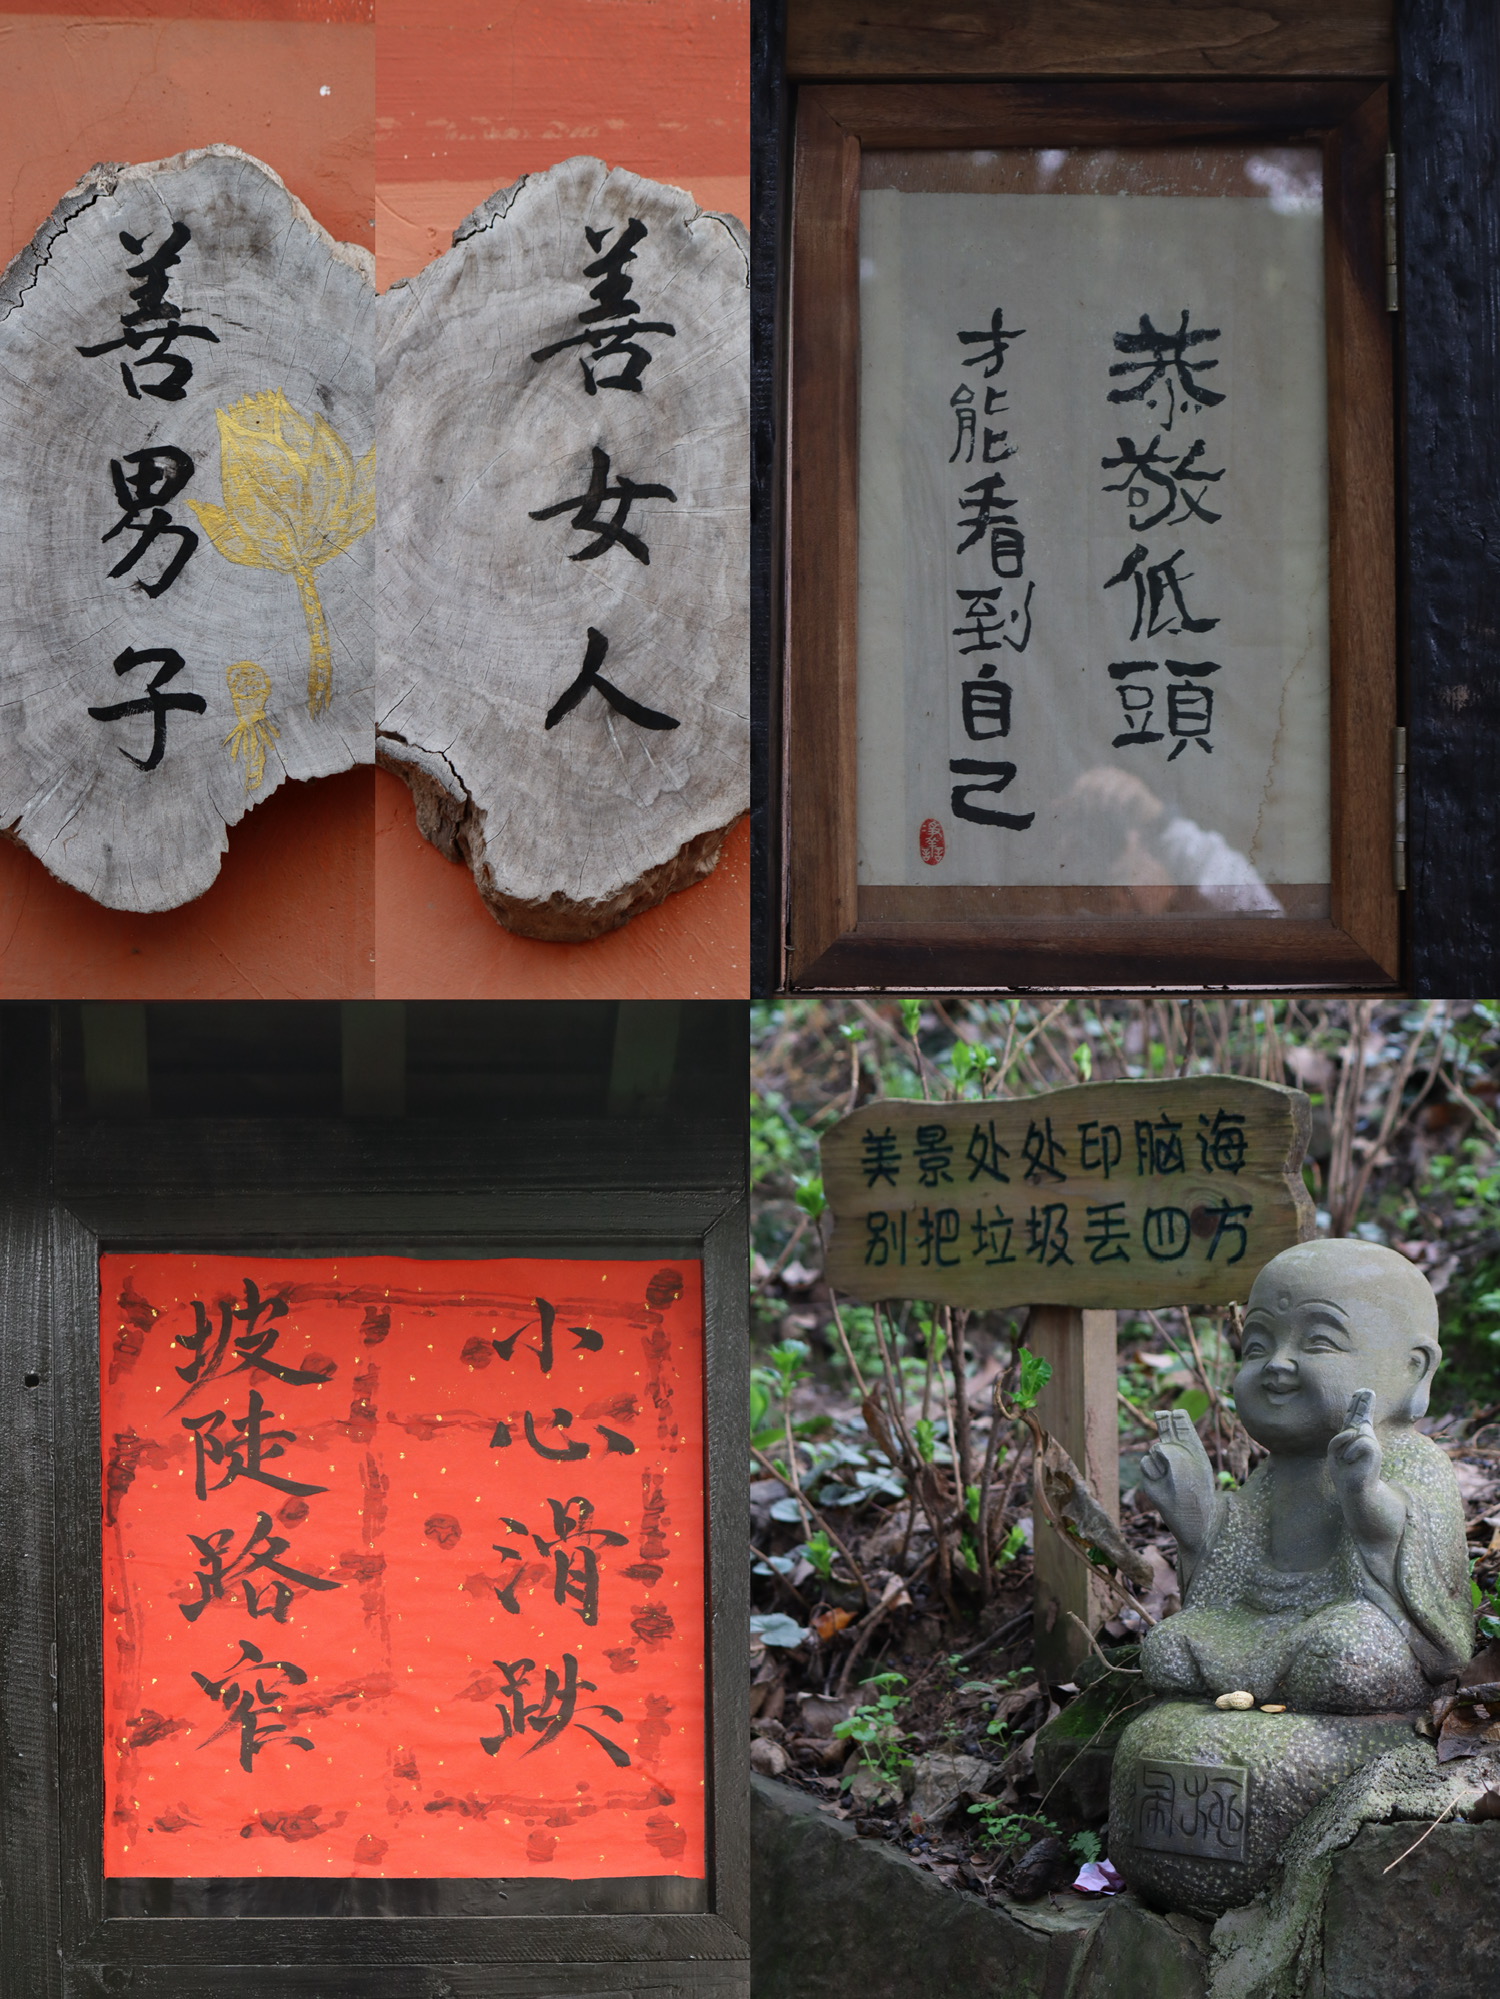 善男子
善女人
恭敬低頭
才能看到自己
小心滑跌
坡陡路窄
美景处处印脑海
别把垃圾丢四方